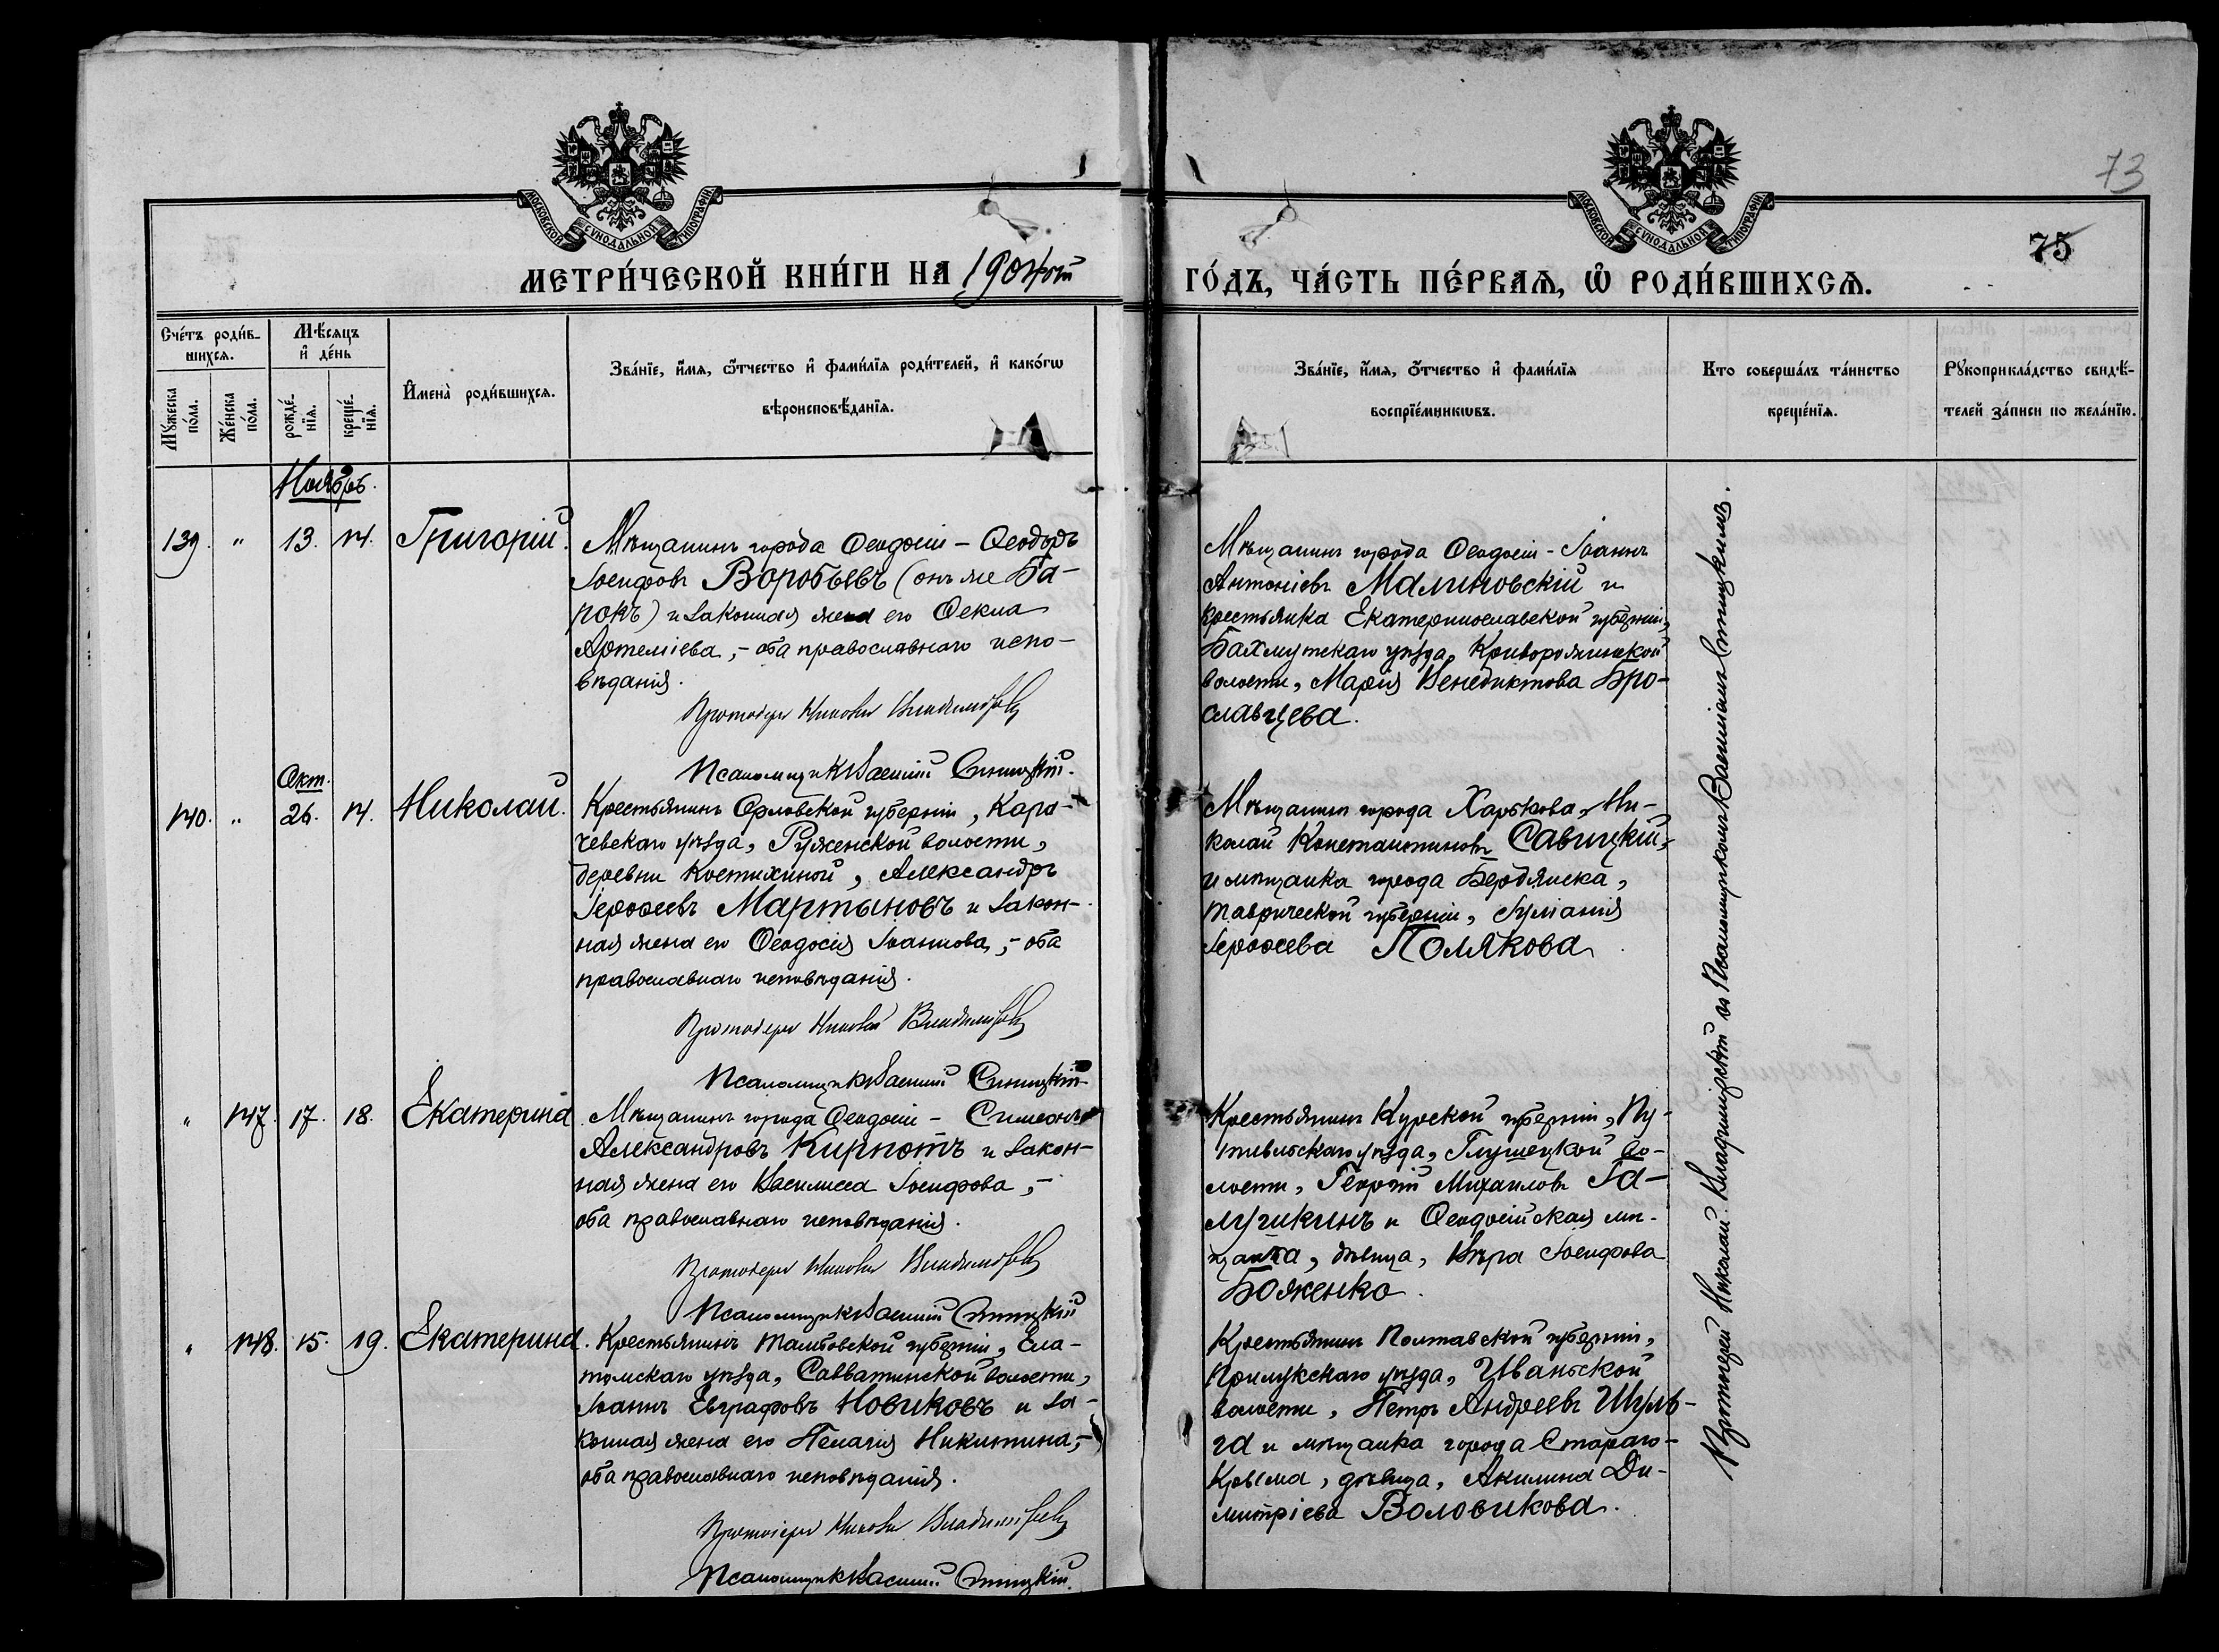 73
75
МОСКОВСКОЙ СѴНОДАЛЬНОЙ ТИПОГРАФІИ
МОСКОВСКОЙ СѴНОДАЛЬНОЙ ТИПОГРАФІИ
МЕТРИ́ЧЕСКОЙ КНИ́ГИ НА 1904ой
ГО́ДЪ, ЧА́СТЬ ПЕ́РВАѦ, Ѽ РОДИ́ВШИХСѦ.
Сче́тъ роди́в-
шихсѧ.
Мꙋжеска по́ла.
Же́нска по́ла.
Мѣ́сѧцъ
и҆ де́нь
рожде́-
нїѧ.
креще́-
нїѧ.
И҆мена̀ роди́вшихсѧ.
Зва́нїе, и҆́мѧ, ѻ҆́тчество и҆ фами́лїѧ роди́телей, и҆ како́гѡ
вѣроисповѣ́данїѧ.
Зва́нїе, и҆́мѧ, ѻ҆́тчество и҆ фами́лїѧ
воспрїе́мникѡвъ.
Кто соверша́лъ та́инство
креще́нїѧ.
Рꙋкоприкла́дство свидѣ́-
телей за́писи по жела́нїю.
Ноябрь.
139. " 13. 14. Григорій.
Мѣщанинъ города Ѳеодосіи – Ѳеодоръ
Іосифовъ Воробьевъ (онъ же Ба-
рокъ) и законная жена его Ѳекла
Артеміева, – оба православнаго испо-
вѣданія.
Протоіерей Николай Владимірскій
Псаломщикъ Василій Синицкій.
Мѣщанинъ города Ѳеодосіи – Іоаннъ
Антоніевъ Малиновскій и
крестьянка Екатеринославской губерніи,
Бахмутскаго уѣзда,
волости, Марія Венедиктова Бро-
славцева.
Окт.
140. " 26. 14. Николай.
Крестьянинъ Орловской губерніи, Кара-
чевскаго уѣзда, Руженской волости,
деревни Костихиной, Александръ
Іероѳеевъ Мартыновъ и закон-
ная жена его Ѳеодосія Іоаннова, – оба
православнаго исповѣданія.
Протоіерей Николай Владимірскій
Псаломщикъ Василій Синицкій
Мѣщанинъ города Харькова, Ни-
колай Константиновъ Савицкій,
и мѣщанка города Бердянска,
Таврической губерніи, Іуліанія
Іероѳеева Полякова
" 147. 17. 18. Екатерина
Мѣщанинъ города Ѳеодосіи – Симеонъ
Александровъ Кирпотъ и закон-
ная жена его Василисса Іосифова, –
оба православнаго исповѣданія.
Протоіерей Николай Владимірскій
Псаломщикъ Василій Синицкій
Крестьянинъ Курской губерніи, Пу-
тивльскаго уѣзда, Глушецкой во-
лости, Георгій Михаиловъ Га-
лушкинъ и Ѳеодосійская мѣ-
щанка, дѣвица, Вѣра Іосифова
Боженко.
" 148. 15. 19. Екатерина.
Крестьянинъ Тамбовской губерніи, Ела-
томскаго уѣзда, Савватинской волости,
Іоаннъ Евграфовъ Новиковъ и за-
конная жена его Пелагія Никитина, –
оба православнаго исповѣданія.
Протоіерей Николай Владимірскій
Псаломщикъ Василій Синицкій.
Крестьянинъ Полтавской губерніи,
Прилукскаго уѣзда, Иваньской
волости, Петръ Андреевъ Шуль-
га и мѣщанка города Стараго-
Крыма, дѣвица, Акилина Ди-
митріева Воловикова.
Протоіерей Николай Владимірскій съ Псаломщикомъ Василіемъ Синицкимъ.